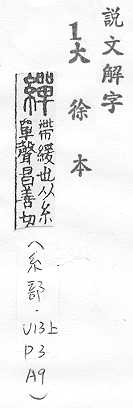 説文解字
1大徐本
繟 帶緩也从糸
單聲昌善切
(糸部.U13上
P3
A9)